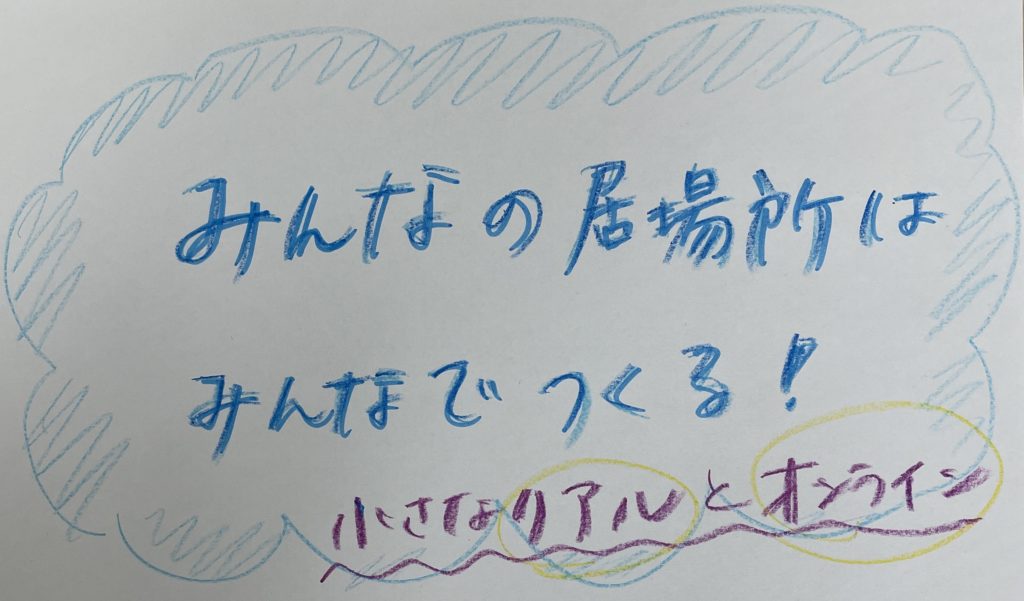 みんなの居場所は
みんなでつくる!
小さなリアルとオンライン